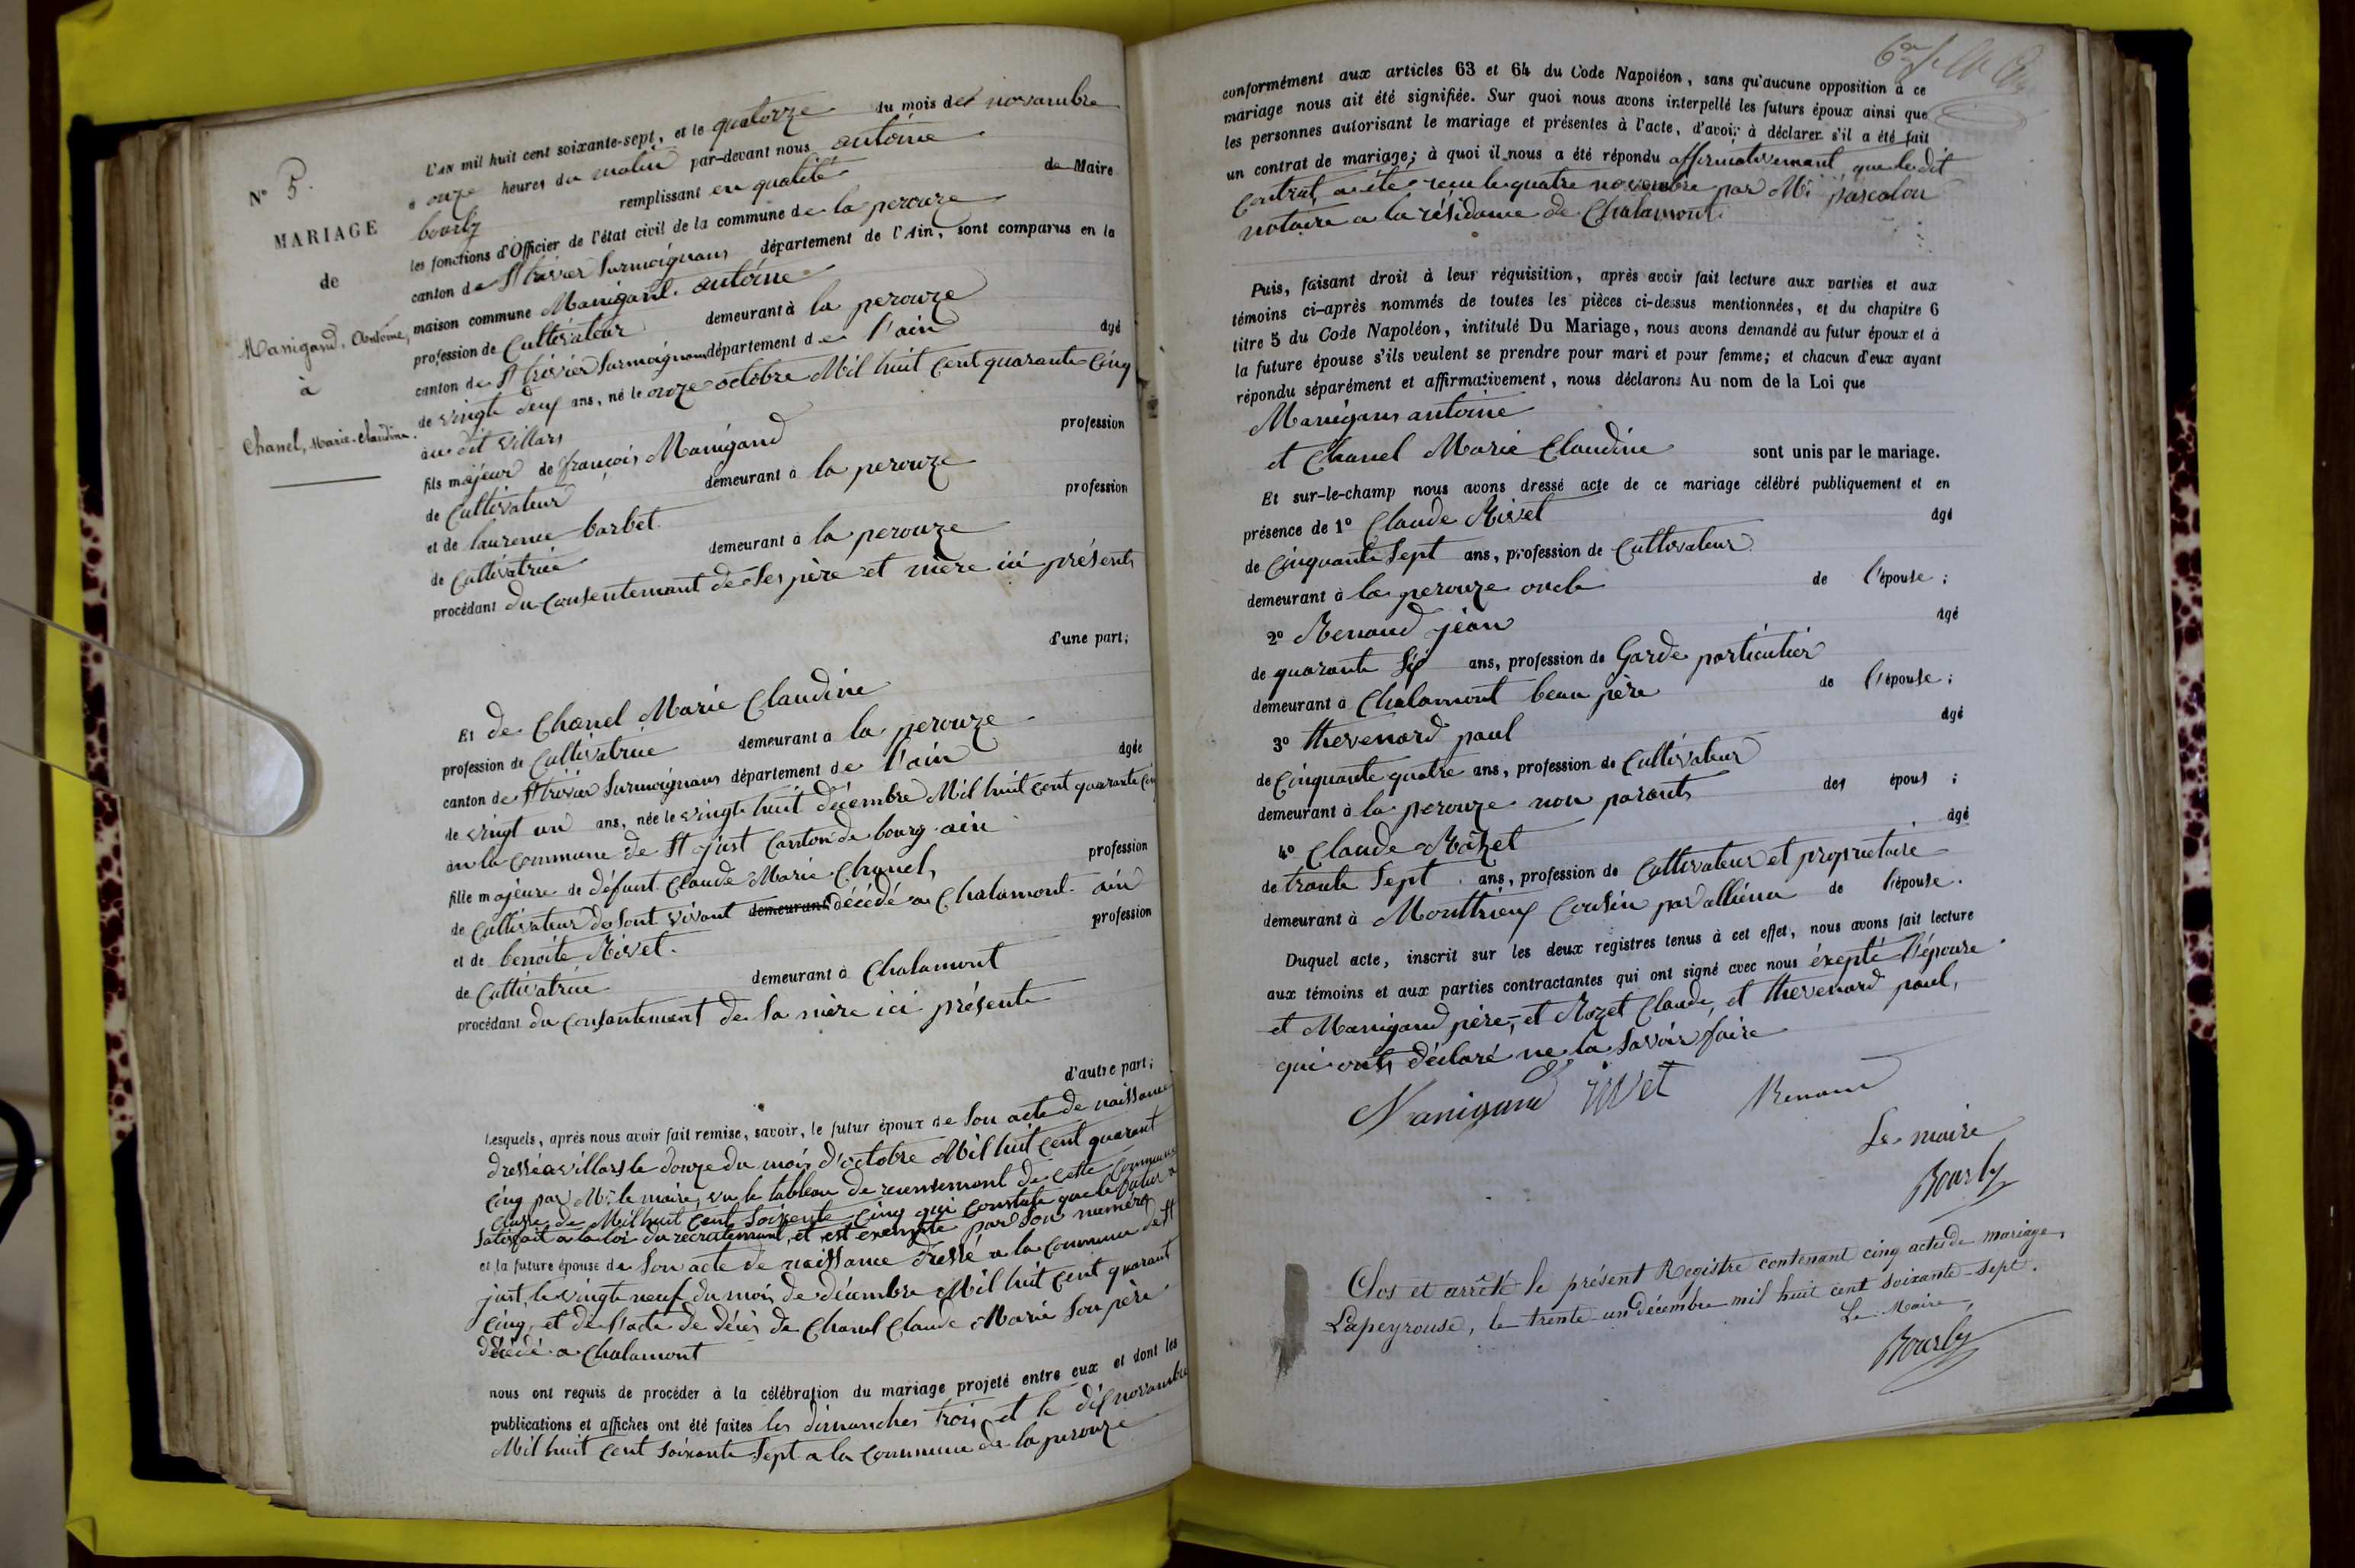 N° 5.
MARIAGE
de
Manigand, Antoine,
à
Chanel, Marie-Claudine.
L'AN mil huit cent soixante-sept, et le quatorze du mois de novambre
a onze heures du matin par-devant nous antoine
bourly remplissant en qualité de Maire
les fonctions d'Officier de l'état civil de la commune de la perouze
canton de St trivier Surmoignans département de l'Ain, sont comparus en la
maison commune Manigand antoine
profession de Cultivateur demeurant à la perouze
canton de St trivier Surmoignans département de l'ain âgé
de vingt deux ans, né le onze octobre Mil huit Cent quarante Cinq
au dit villars
fils majeur de françois Manigand profession
de Cultivateur demeurant à la perouze
et de laurence barbet profession
de Cultivatrice demeurant à la perouze
procédant du Consentement de Ses père et mère ici présents
d'une part;
Et de Chanel Marie Claudine
profession de Cultivatrice demeurant à la perouze
canton de St trivier Surmoignans département de l'ain âgée
de vingt un ans, née le vingt huit décembre Mil huit Cent quarante Cinq
au la Commune de St just Canton de bourg ain
fille majeure de défunt Claude Marie Chanel, profession
de Cultivateur de Sont vivant demeurant décédé a Chalamont ain
et de benoite Rivet. profession
de Cultivatrice demeurant à Chalamont
procédant du Consantement de Sa mère ici présente
d'autre part;
Lesquels, après nous avoir fait remise, savoir, le futur époux de Son acte de naissance
dressé a villars le douze du mois d'octobre Mil huit Cent quarant
Cinq par Mr le maire, vu le tableau de recensement de cette Commune
Classe de Mil huit Cent Soixente Cinq qui Constate que le futur a
Satisfait a la loi du recrutement, et est exempte par Son numéro
et la future épouse de Son acte de naissance dressé a la Commune de St
just, le vingt neuf du mois de décembre Mil huit Cent quarant
Cinq, et de l'acte de décès de Chanel Claude Marie Son père
décédé a Chalamont
nous ont requis de procéder à la célébration du mariage projeté entre eux et dont les
publications et affiches ont été faites les dimanches trois, et le dix novambre
Mil huit Cent Soixante Sept a la Commune de la perouze
conformément aux articles 63 et 64 du Code Napoléon, sans qu'aucune opposition à ce
mariage nous ait été signifiée. Sur quoi nous avons interpellé les futurs époux ainsi que
les personnes autorisant le mariage et présentes à l'acte, d'avoir à déclarer s'il a été fait
un contrat de mariage; à quoi il nous a été répondu affirmativemant que le dit
Contrat a été reçu le quatre novembre par Mr pascalon
notaire a la résidance de Chalamont.
Puis, faisant droit à leur réquisition, après avoir fait lecture aux parties et aux
témoins ci-après nommés de toutes les pièces ci-dessus mentionnées, et du chapitre 6
titre 5 du Code Napoléon, intitulé Du Mariage, nous avons demandé au futur époux et à
la future épouse s'ils veulent se prendre pour mari et pour femme; et chacun d'eux ayant
répondu séparément et affirmativement, nous déclarons Au nom de la Loi que
Manigans antoine
et Chanel Marie Claudine sont unis par le mariage.
Et sur-le-champ nous avons dressé acte de ce mariage célébré publiquement et en
présence de 1° Claude Rivet âgé
de Cinquante Sept ans, profession de Cultivateur
demeurant à la perouze oncle de l'épouse;
2° Renaud jean âgé
de quarante Six ans, profession de Garde particulier
demeurant à Chalamont beau père de l'épouse;
3° thevenard paul âgé
de Cinquante quatre ans, profession de Cultivateur
demeurant à la perouze non parants des épous;
4° Claude Rozet âgé
de trante Sept ans, profession de Cultivateur et proprietaire
demeurant à Monthieux Cousin par alliéna de l'épouse.
Duquel acte, inscrit sur les deux registres tenus à cet effet, nous avons fait lecture
aux témoins et aux parties contractantes qui ont signé avec nous éxepté l'épouse
et Manigand père, et Rozet Claude, et thevenard paul,
qui onts déclaré ne la Savoir faire
Manigand rivet Renaud
Le maire
Bourly
Clos et arrêté le présent Registre contenant cinq actes de mariage,
Lapeyrouse, le trente-un décembre mil huit cent soixante-sept.
Le Maire,
Bourly